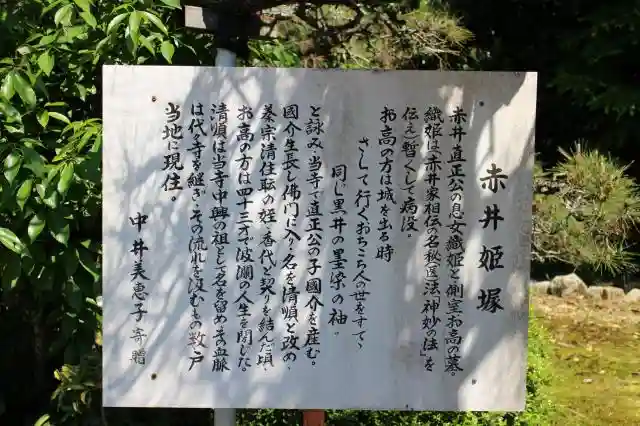 赤井姫塚
赤井直正公の息女織姫と側室お高の墓。
織姫は赤井家相伝の名秘医法「神妙の法」を
伝え、暫くして病没。
お高の方は城を出る時
さして行くおちこち人の世をすてゝ
同じ黒井の墨染の袖
と詠み、当寺で直正公の子国介を産む。
国介生長し佛門に入り名を清順と改め、
秦宗清住職の姪・香代と契りを結んだ頃、
お高の方は四十三才で波瀾の人生を閉じた。
清順は当寺中興の祖として名を留め、血脈
は代々寺を継ぎ、その流れを汲むもの数戸
当地に現住。
中井美恵子 寄贈